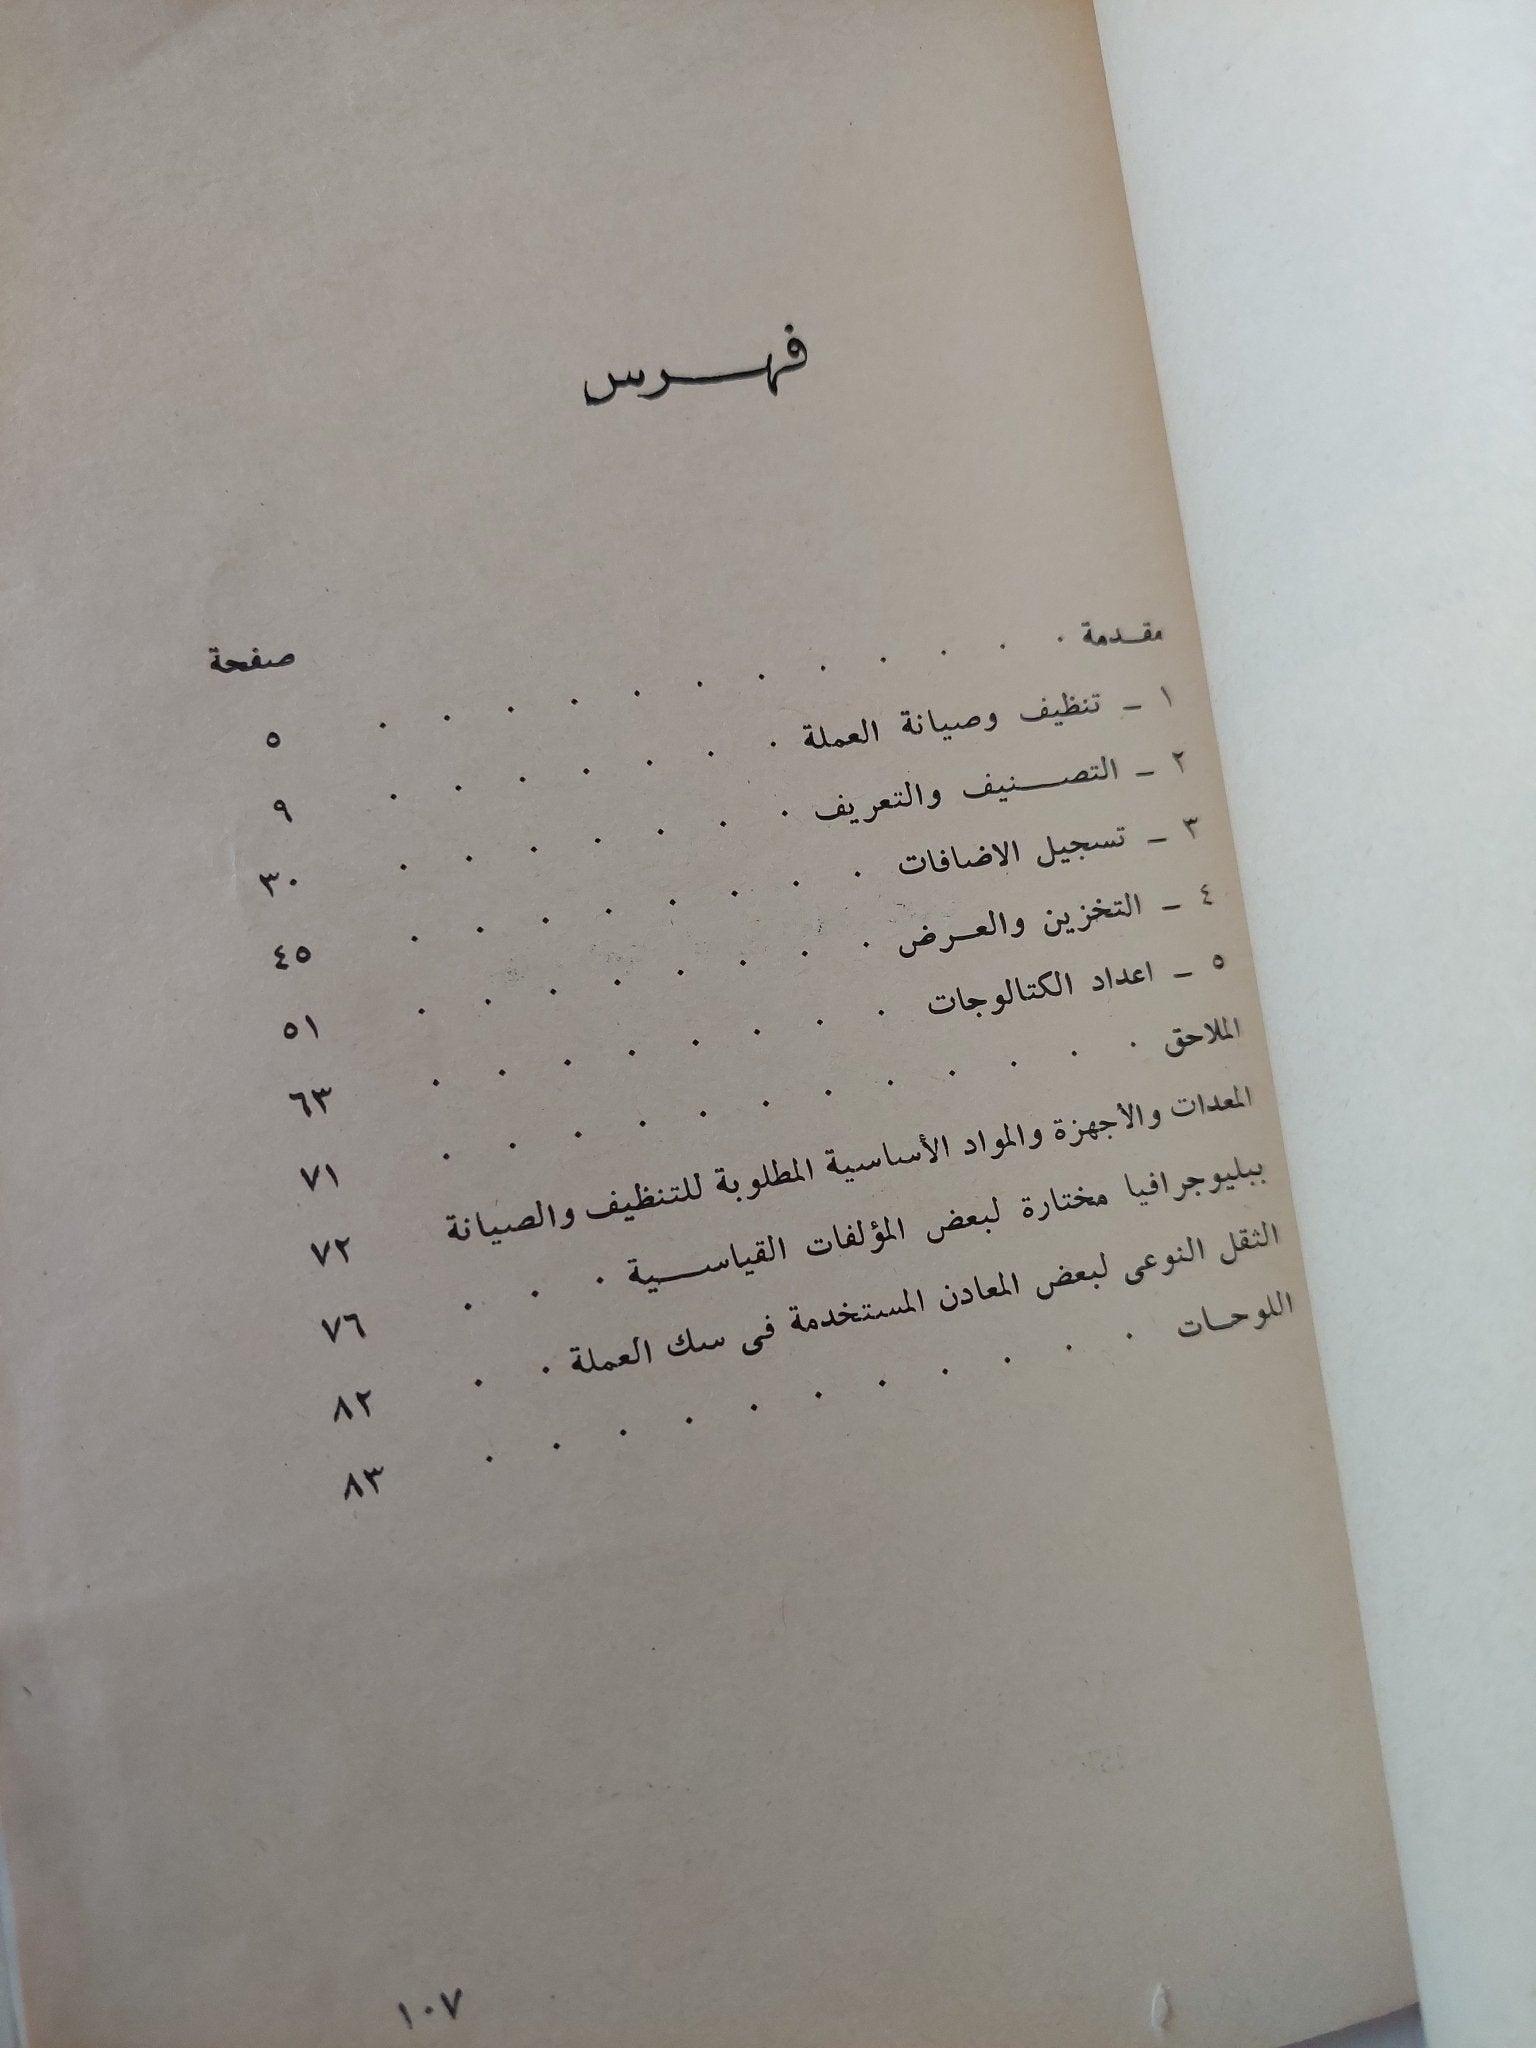 فهرس
صفحة
مقدمة . . . . . . . . . . . . ٥
١ - تنظيف وصيانة العملة . . . . . . . ٩
٢ - التصنيف والتعريف . . . . . . . ٣٠
٣ - تسجيل الاضافات . . . . . . . . ٤٥
٤ - التخزين والعرض . . . . . . . . ٥١
٥ - اعداد الكتالوجات . . . . . . . . ٦٣
الملاحق . . . . . . . . . . . . ٧١
المعدات والأجهزة والمواد الأساسية المطلوبة للتنظيف والصيانة ٧٢
ببليوجرافيا مختارة لبعض المؤلفات القياسية . . . ٧٦
الثقل النوعى لبعض المعادن المستخدمة فى سك العملة . . ٨٢
اللوحات . . . . . . . . . . . ٨٣
١٠٧